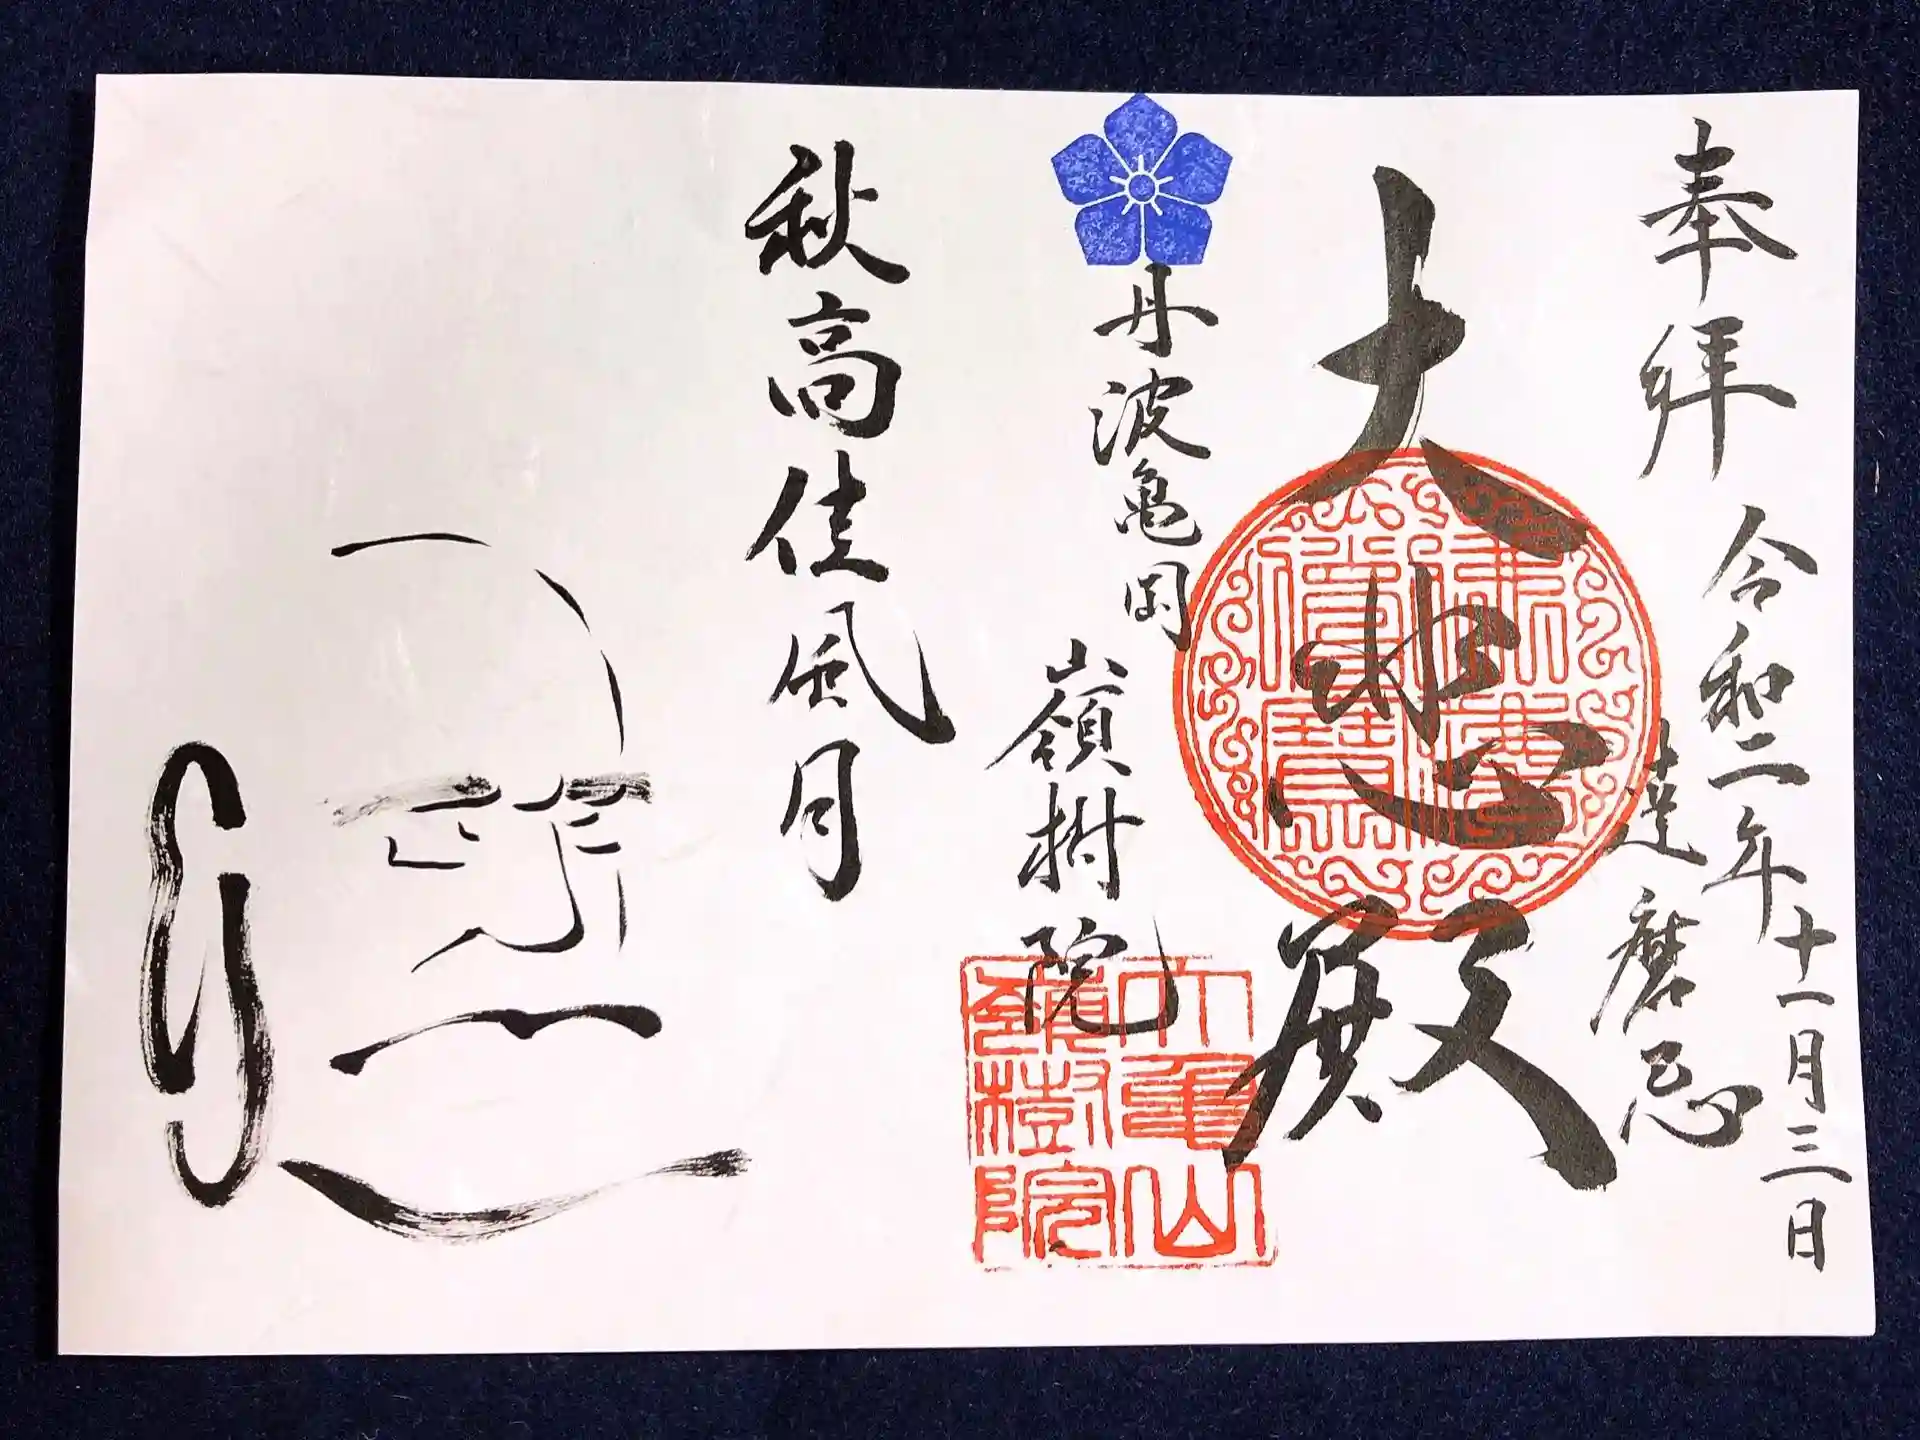 奉拜
令和二年十一月三日
達磨忌
大悲殿
丹波亀岡
嶺樹院
大亀山
嶺樹院
秋高佳風月